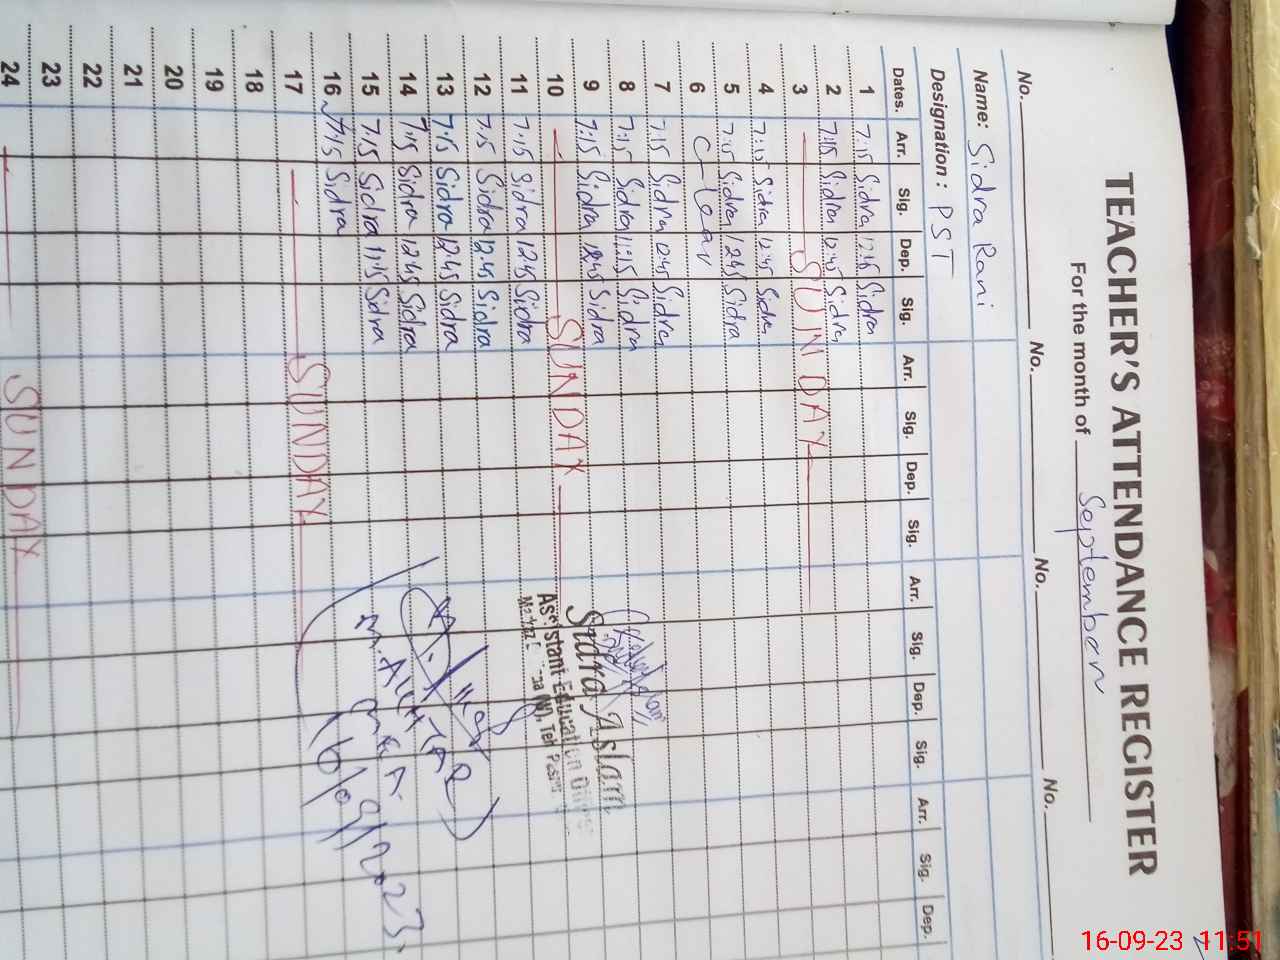 TEACHER'S ATTENDANCE REGISTER
For the month of September
No. No. No. No.
Name: Sidra Rani
Designation: PST
Dates. Arr. Sig. Dep. Sig. Arr. Sig. Dep. Sig. Arr. Sig. Dep. Sig. Arr. Sig. Dep.
1 7:15 Sidra 12:45 Sidra
2 7:15 Sidra 12:45 Sidra
3 SUNDAY
4 7:15 Sidra 12:45 Sidra
5 7:15 Sidra 12:45 Sidra
6
7 7:15 Sidra 12:45 Sidra
8 7:15 Sidra 11:15 Sidra
9 7:15 Sidra 12:45 Sidra
Sidra Aslam
Assistant Education
10 SUNDAY
11 7:15 Sidra 12:45 Sidra
12 7:15 Sidra 12:45 Sidra
13 7:15 Sidra 12:45 Sidra
14 7:15 Sidra 12:45 Sidra
15 7:15 Sidra 11:15 Sidra
16 7:15 Sidra
16/09/2023
17 SUNDAY
18
19
20
21
22
23
24 SUNDAY
16-09-23 11:51